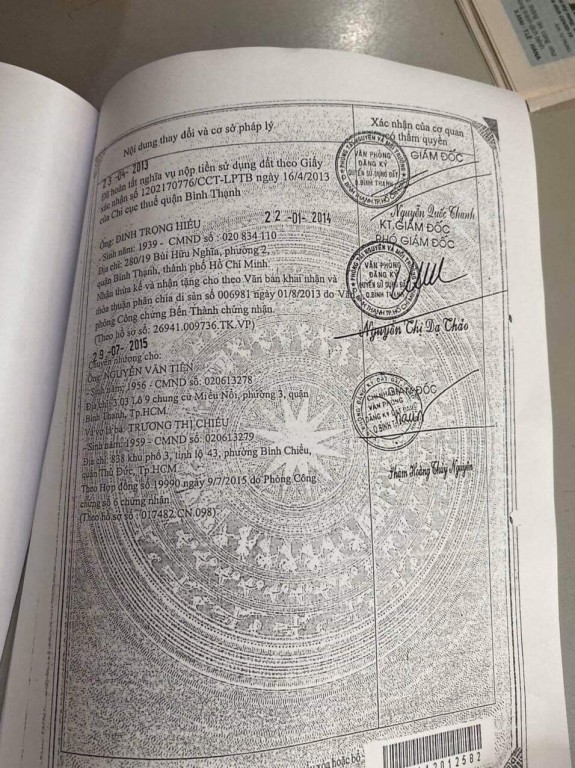 Nội dung thay đổi và cơ sở pháp lý
Xác nhận của cơ quan
có thẩm quyền
23-04-2013
Đã hoàn tất nghĩa vụ nộp tiền sử dụng đất theo Giấy
xác nhận số 1202170776/CCT-LPTB ngày 16/4/2013
của Chi cục thuế quận Bình Thạnh
GIÁM ĐỐC
VĂN PHÒNG
ĐĂNG KÝ
QUYỀN SỬ DỤNG ĐẤT
Q.BÌNH THẠNH
Nguyễn Quốc Thanh
22-01-2014
Ông: ĐINH TRỌNG HIẾU
- Sinh năm: 1939 - CMND số : 020 834 110
Địa chỉ: 280/19 Bùi Hữu Nghĩa, phường 2,
quận Bình Thạnh, thành phố Hồ Chí Minh.
Nhận thừa kế và nhận tặng cho theo Văn bản khai nhận và
thỏa thuận phân chia di sản số 006981 ngày 01/8/2013 do Văn
phòng Công chứng Bến Thành chứng nhận.
(Theo hồ sơ số: 26941.009736.TK.VP)
KT.GIÁM ĐỐC
PHÓ GIÁM ĐỐC
VĂN PHÒNG
ĐĂNG KÝ
QUYỀN SỬ DỤNG ĐẤT
Q.BÌNH THẠNH
Nguyễn Thị Dạ Thảo
29-07-2015
Chuyển nhượng cho:
Ông: NGUYỄN VĂN TIẾN
- Sinh năm: 1956 - CMND số: 020613278
Địa chỉ: 3.03 Lô 9 chung cư Miếu Nổi, phường 3, quận
Bình Thạnh, Tp.HCM.
Và vợ là bà: TRƯƠNG THỊ CHIỂU
- Sinh năm: 1959 - CMND số: 020613279
Địa chỉ: 838 khu phố 3, tỉnh lộ 43, phường Bình Chiểu,
quận Thủ Đức, Tp.HCM
Theo Hợp đồng số 19990 ngày 9/7/2015 do Phòng Công
chứng số 6 chứng nhận
(Theo hồ sơ số : 017482.CN.098)
GIÁM ĐỐC
CHI NHÁNH
VĂN PHÒNG
ĐĂNG KÝ ĐẤT ĐAI
Q.BÌNH
Phạm Hoàng Thúy Nguyên
hoặc bổ
12012582